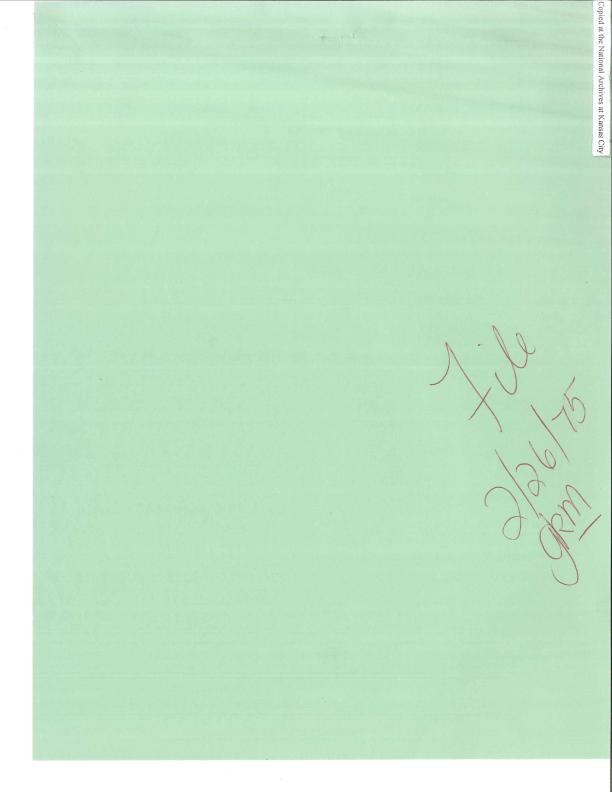 Copied at the National Archives at Kansas City
File
2/26/75
GRM